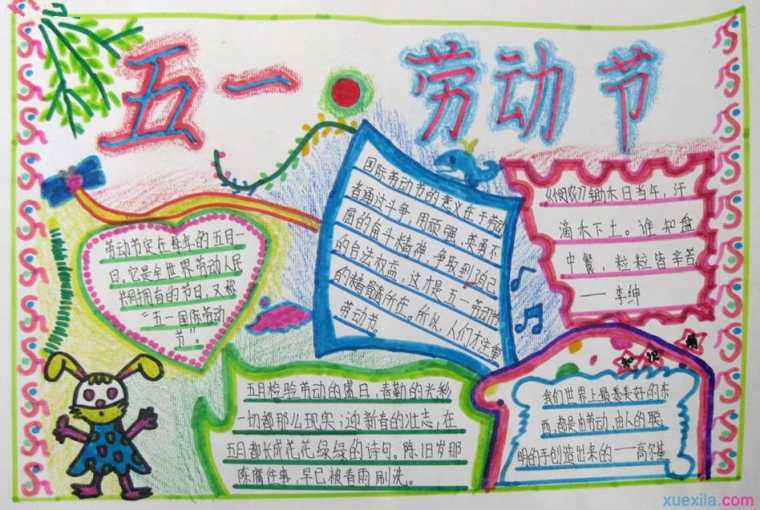 五一 劳动节
劳动节定在每年的五月一
日。它是全世界劳动人民
共同拥有的节日，又称
“五一国际劳动
节”。
国际劳动节的意义在于劳动
者通过斗争，用顽强、英勇不
屈的奋斗精神，争取到自己
的合法权益，这才是五一劳动节
的精髓所在。所以，人们才注重
劳动节。
《悯农》锄禾日当午，汗
滴禾下土。谁知盘
中餐，粒粒皆辛苦
——李绅
五月检验劳动的盛日，春勤的光彩
一切都那么现实；迎新春的壮志，在
五月都长成花花绿绿的诗句。陈旧岁那
陈腐往事，早已被春雨刷洗。
我们世界上最美好的东
西，都是由劳动，由人的聪
明的手创造出来的——高尔基
xuexila.com